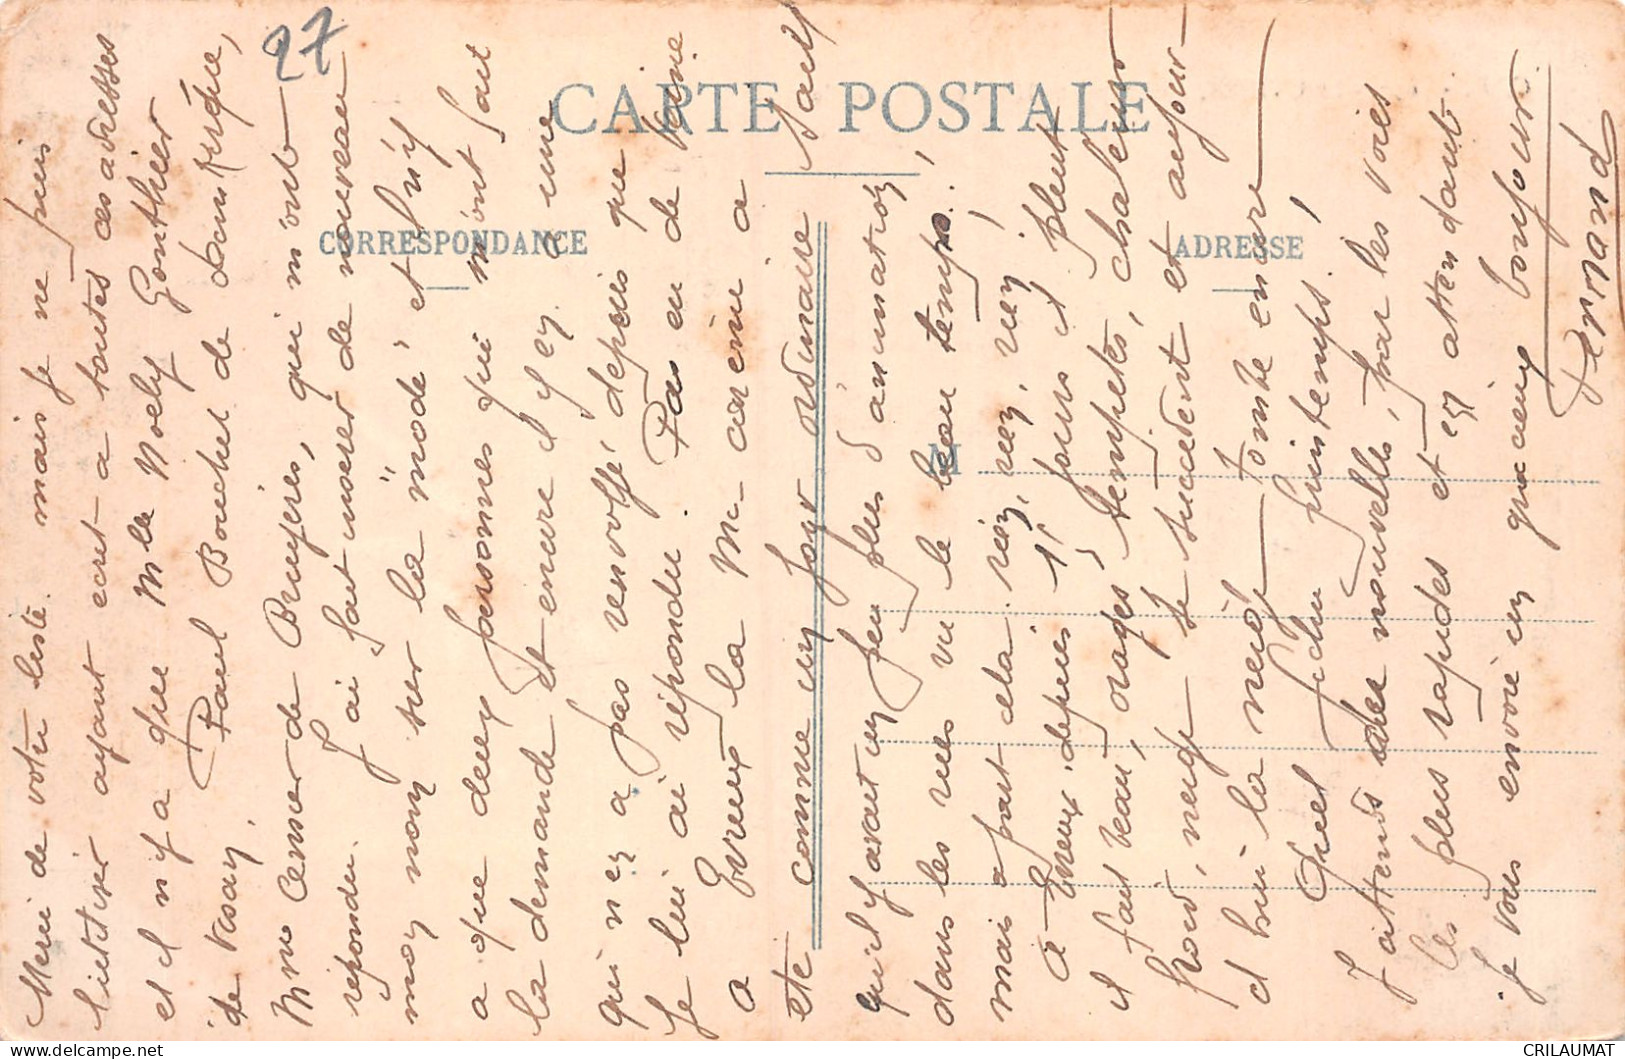 27
CARTE POSTALE
CORRESPONDANCE
ADRESSE
M
Merci de votre liste. mais je ne puis
l'utiliser ayant ecrit a toutes ces adresses
et il n'y a que Mlle Noely Gonthier
Paul Bouchet de
de
Mme Cesner de Bruyères, qui m'ont
répondu. J'ai fait inserer de nouveau
mon nom sur la "mode" et il n'y
a que deux personnes qui m'ont fait
la demande et encore il y en a une
qui n'en a pas renvoyé depuis que
je lui ai répondu. Pas eu de veine
a Evreux la Mi-carême a
ete comme un jour ordinaire sauf
qu'il y avait un peu plus d'animation,
dans les rues vu le beau temps.
mais a part cela rien, rien, rien, rien!
a Evreux depuis 15 jours il pleut
il fait beau, orages, tempetes, chaleur
froid, neige se succèdent et aujour-
d'hui la neige tombe encore
Quel fichu printemps!
J'attends des nouvelles, par les voies
les plus rapides et en attendant
Je vous envoie un gracieux bonjour.
Fernand
CRILAUMAT